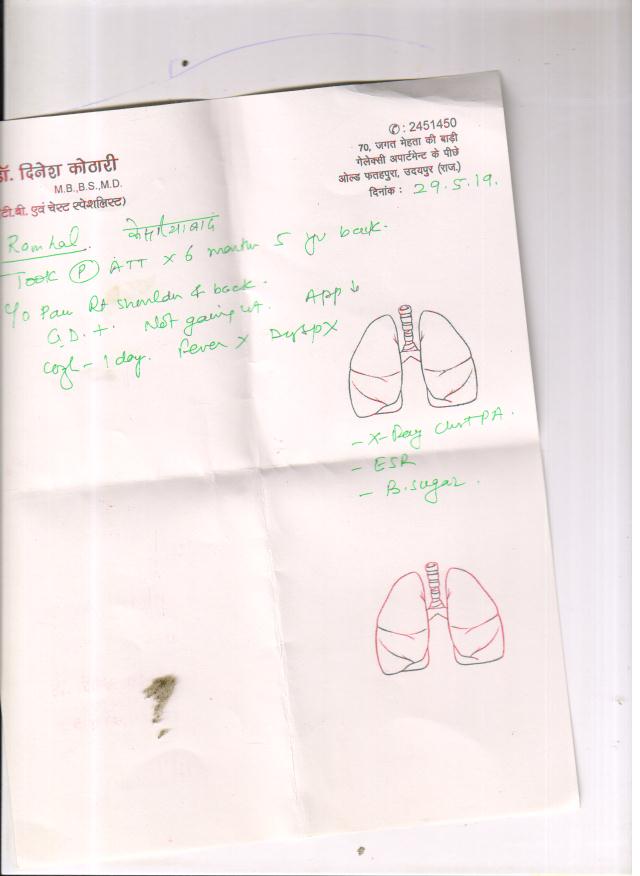 डॉ. दिनेश कोठारी
M.B.,B.S.,M.D.
टी.बी. एवं चेस्ट स्पेशलिस्ट)
✆: 2451450
70, जगत मेहता की बाड़ी
गेलेक्सी अपार्टमेन्ट के पीछे
ओल्ड फतहपुरा, उदयपुर (राज.)
दिनांक : 29.5.19.
Took (P) ATT x 6 months 5 yr back.
Pain Rt shoulder & back.
G.D. +. Not gaining wt. App ↓
Cough - 1 day. Fever x
- X-Ray Chest PA.
- ESR
- B.sugar.